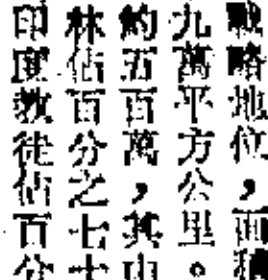 戰略地位，面積
九萬平方公里。
約五百萬，其中
林佔百分之七十
印度教徒佔百分